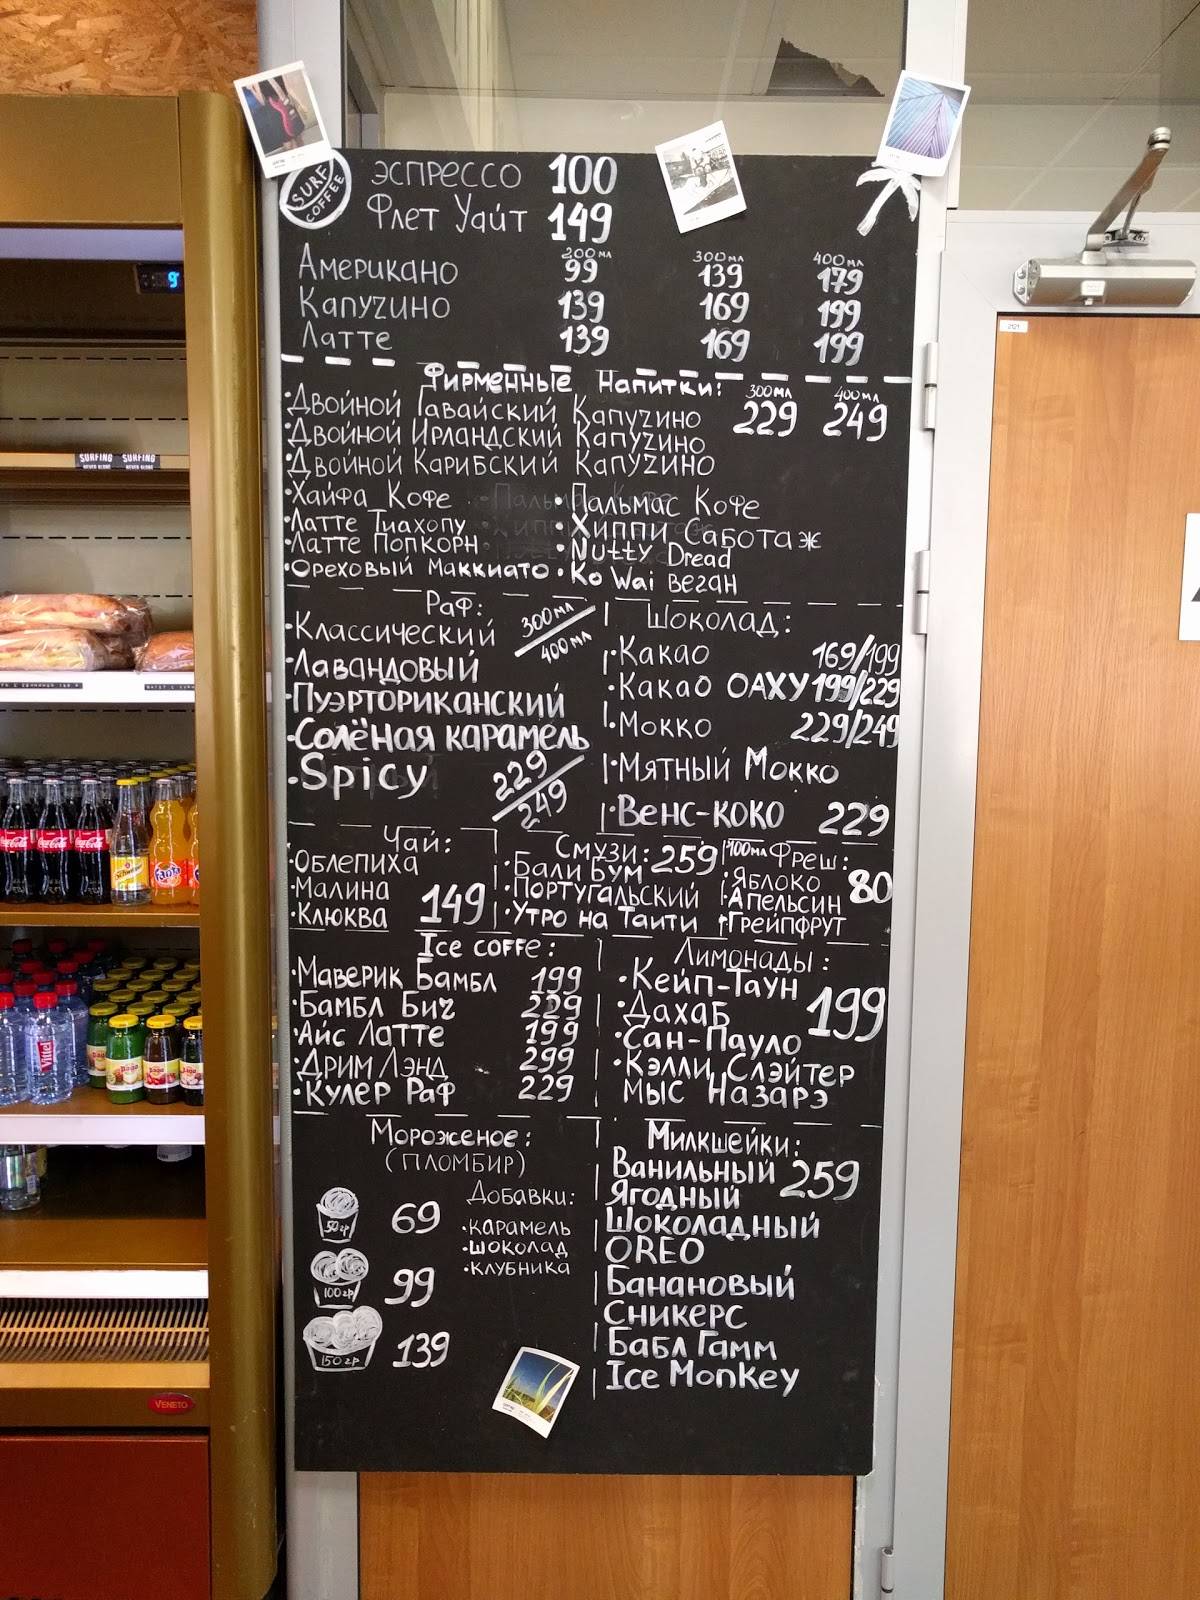 SURF
COFFEE
ЭСПРЕССО 100
Флет Уайт 149
200 мл 300 мл 400 мл
Американо 99 139 179
Капучино 139 169 199
Латте 139 169 199
Фирменные Напитки: 300 мл 400 мл
229 249
·Двойной Гавайский Капучино
·Двойной Ирландский Капучино
·Двойной Карибский Капучино
·Хайфа Кофе ·Пальмас Кофе
·Латте Тиахопу ·Хиппи Саботаж
·Латте Попкорн ·Nutty Dread
·Ореховый Маккиато ·Ko Wai веган
Раф: 300 мл
400 мл
·Классический
·Лавандовый
·Пуэрториканский
·Солёная карамель
·Spicy 229
249
Шоколад:
·Какао 169/199
·Какао ОАХУ 199/229
·Мокко 229/249
·Мятный Мокко
·Венс-коко 229
Чай:
·Облепиха
·Малина 149
·Клюква
Смузи: 259
·Бали Бум
·Португальский
·Утро на Таити
100мл Фреш:
·Яблоко 80
·Апельсин
·Грейпфрут
Ice coffe:
·Маверик Бамбл 199
·Бамбл Бич 229
·Айс Латте 199
·Дрим Лэнд 299
·Кулер Раф 229
Лимонады:
·Кейп-Таун 199
·Дахаб
·Сан-Пауло
·Кэлли Слэйтер
Мыс Назарэ
Мороженое:
(пломбир)
50 гр 69
100 гр 99
150 гр 139
Добавки:
·карамель
·шоколад
·клубника
Милкшейки:
Ванильный 259
Ягодный
Шоколадный
OREO
Банановый
Сникерс
Бабл Гамм
Ice Monkey
SURFING SURFING
Coca-Cola
Fanta
Vittel
VENETO
2121